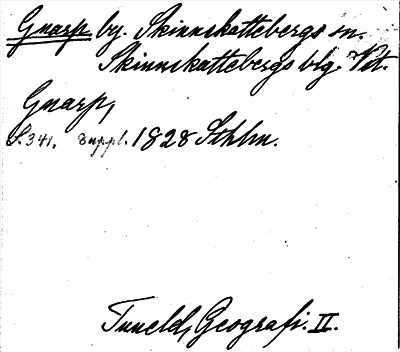 Gnarp by. Skinnskattebergs sn.
Skinnskattebergs blg. Vstm.
Gnarp,
S. 341. suppl. 1828 Sthlm.
Tuneld, Geografi. II.